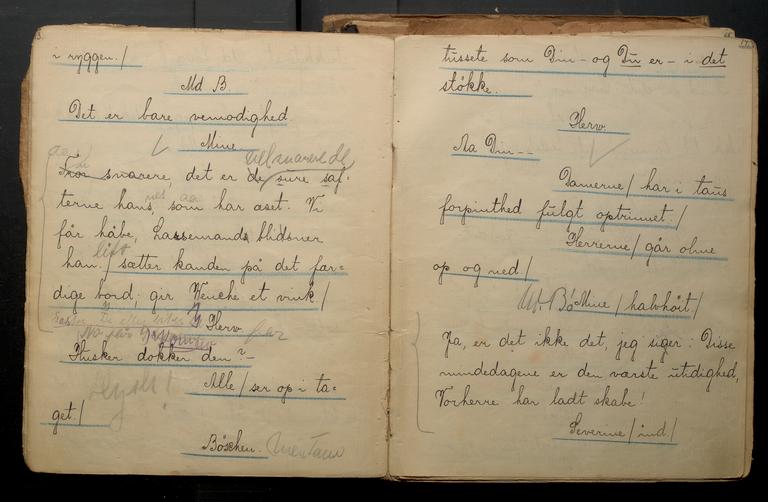 i ryggen./
Md B.
Det er bare vemodighed
Mine
Tror snarere, det er de sure saf-
terne hans, som har æset. Vi
får håbe, Lassemands blidsner
han./ sætter kanden på det fær-
dige bord; gir Wenche et vink/
Herv.
Husker dokken den?-
Alle/ ser op i ta-
get./
Böschen.
tussete som Din - og Du er - i det
støkke.
Herv.
Aa Din--
Damerne/ har i taus
forpinthed fulgt optrinnet./
Herrerne/ går olme
op og ned/
Mine/ halvhöit/
Ja, er det ikke det, jeg siger: Disse
mindedagene er den værste utidighed,
Vorherre har ladt skabe!
Severine/ ind./